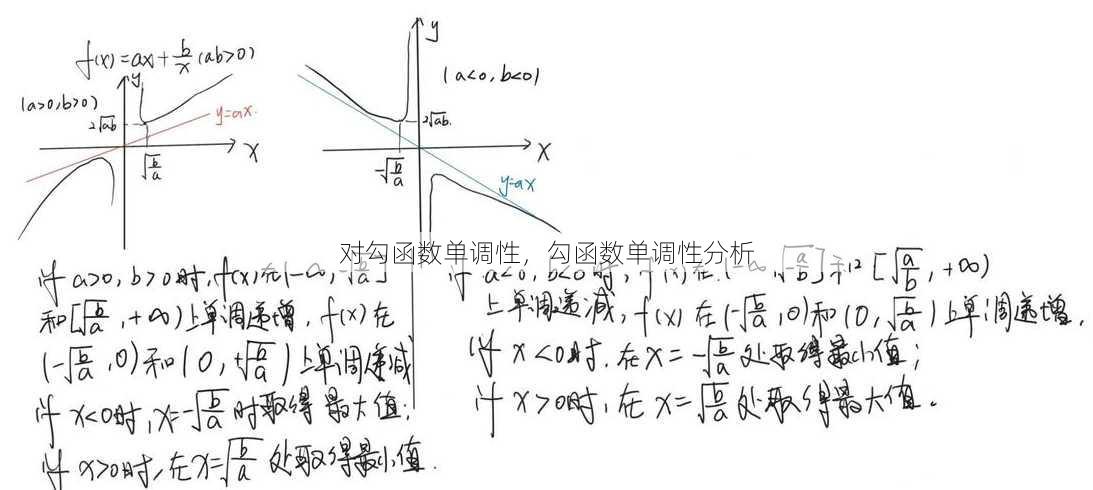 f(x)=ax+b/x (ab>0)
(a>0,b>0)
y
2√ab
y=ax.
x
√(b/a)
y
(a<0,b<0)
2√ab.
x
-√(b/a)
y=ax
对勾函数单调性，勾函数单调性分析
if a>0, b>0时, f(x)在(-∞, -√(b/a)]
和[√(b/a), +∞)上单调递增, f(x)在
(-√(b/a), 0)和(0, +√(b/a))上单调递减
if x<0时, x=-√(b/a)时取得最大值;
if x>0时, 在x=√(b/a)处取得最小值.
if a<0, b<0时, f(x)在(-∞, -√(a/b)]和[√(a/b), +∞)
上单调递减, f(x)在(-√(b/a), 0)和(0, √(b/a))上单调递增.
if x<0时, 在x=-√(b/a)处取得最小值;
if x>0时, 在x=√(b/a)处取得最大值.